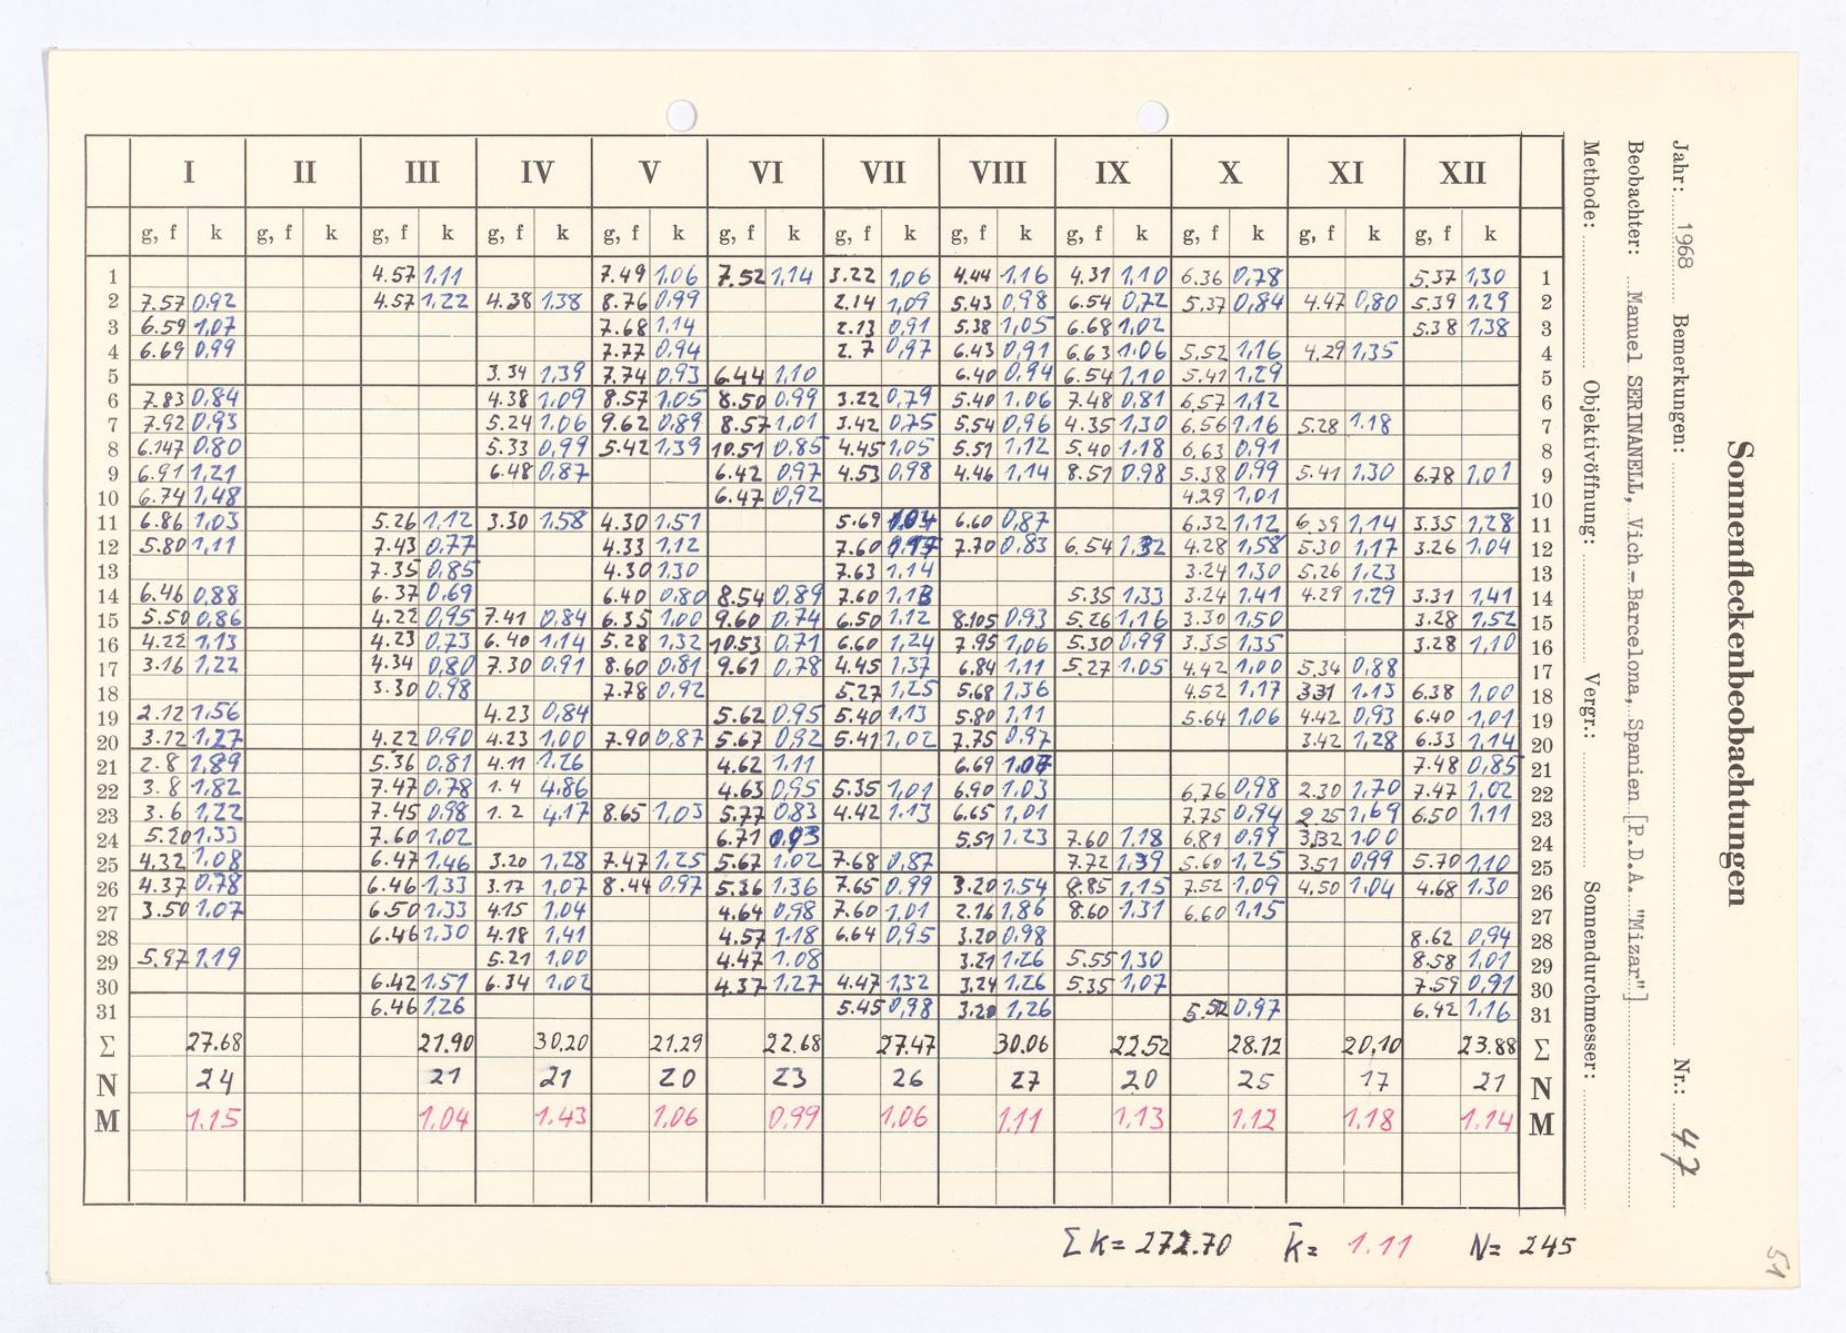 I II III IV V VI VII VIII IX X XI XII
g, f k g, f k g, f k g, f k g, f k g, f k g, f k g, f k g, f k g, f k g, f k g, f k
1 4.57 1,11 7.49 1.06 7.52 1,14 3.22 1,06 4.44 1.16 4.31 1,10 6.36 0,78 5.37 1,30 1
2 7.57 0,92 4.57 1,22 4.38 1.38 8.76 0,99 2.14 1,09 5.43 0,98 6.54 0,72 5,37 0,84 4.47 0,80 5.39 1.29 2
3 6.59 1,07 7.68 1.14 2.13 0,91 5.38 1,05 6.68 1,02 5.38 1,38 3
4 6.69 0,99 7.77 0,94 2. 7 0,97 6.43 0,91 6.63 1.06 5,52 1,16 4.29 1,35 4
5 3.34 1,39 7.74 0,93 6.44 1,10 6.40 0,94 6.54 1,10 5.41 1,29 5
6 7.83 0,84 4.38 1.09 8.57 1,05 8.50 0,99 3.22 0,79 5.40 1.06 7.48 0,81 6,57 1,12 6
7 7.92 0,93 5.24 1.06 9.62 0,89 8.57 1,01 3.42 0,75 5,54 0,96 4.35 1,30 6,56 1.16 5.28 1.18 7
8 6.147 0,80 5.33 0,99 5.42 1,39 10.51 0,85 4.45 1,05 5.51 1,12 5,40 1.18 6,63 0,91 8
9 6.91 1,21 6.48 0,87 6.42 0,97 4.53 0,98 4.46 1,14 8.51 0,98 5.38 0,99 5.41 1,30 6.78 1,01 9
10 6.74 1,48 6.47 0,92 4.29 1,01 10
11 6.86 1,03 5.26 1,12 3.30 1,58 4.30 1,51 5.69 1.04 6.60 0,87 6.32 1,12 6 39 1,14 3.35 1,28 11
12 5.80 1,11 7.43 0,77 4.33 1,12 7.60 7.70 0,83 6.54 1,32 4.28 1,58 5.30 1,17 3.26 1,04 12
13 7.35 0,85 4.30 1,30 7.63 1,14 3.24 1,30 5,26 1,23 13
14 6.46 0,88 6.37 0,69 6.40 0,80 8.54 0,89 7.60 1,13 5.35 1,33 3.24 1,41 4.29 1.29 3.31 1,41 14
15 5.50 0,86 4.22 0,95 7.41 0,84 6.35 1,00 9.60 0,74 6.50 1,12 8.105 0,93 5.26 1,16 3.30 1,50 3.28 1,52 15
16 4.22 1,13 4.23 0,73 6.40 1,14 5.28 1,32 10.53 0,71 6.60 1,24 7.95 1,06 5.30 0,99 3.35 1,35 3.28 1,10 16
17 3.16 1,22 4.34 0,80 7.30 0,91 8.60 0,81 9.61 0,78 4.45 1,37 6.84 1,11 5.27 1.05 4.42 1,00 5,34 0,88 17
18 3.30 0,98 7.78 0,92 5.27 1,25 5.68 1,36 4.52 1,17 331 1.13 6.38 1,00 18
19 2.12 1,56 4.23 0,84 5.62 0,95 5.40 1,13 5.80 1,11 5.64 1,06 4.42 0,93 6.40 1,01 19
20 3.12 1,27 4.22 0,90 4.23 1,00 7.90 0,87 5.67 0,92 5.41 1,02 7.75 0,97 3.42 1,28 6.33 1,14 20
21 2.8 1,89 5.36 0,81 4.11 1.26 4.62 1,11 6.69 1.07 7.48 0,85 21
22 3. 8 1,82 7.47 0,78 1. 4 4.86 4.63 0,95 5.35 1,01 6.90 1.03 6,76 0,98 2.30 1,70 7.47 1,02 22
23 3. 6 1,22 7.45 0,98 1. 2 4,17 8.65 1,03 5.77 0,83 4.42 1.13 6.65 1,01 7.75 0,94 2 25 1,69 6.50 1,11 23
24 5.20 1,33 7.60 1,02 6.71 0.93 5,51 1.23 7.60 1.18 6,81 0,99 3,32 1.00 24
25 4,32 1,08 6.47 1,46 3.20 1,28 7.47 1,25 5.67 1,02 7.68 0,87 7.72 1,39 5.60 1,25 3.51 0,99 5.70 1,10 25
26 4.37 0,78 6.46 1,33 3.17 1,07 8.44 0,97 5.36 1,36 7.65 0,99 3.20 1,54 8.85 1,15 7.52 1,09 4,50 1.04 4.68 1.30 26
27 3.50 1,07 6.50 1.33 4.15 1,04 4.64 0,98 7.60 1,01 2.16 1,86 8.60 1.31 6.60 1,15 27
28 6.46 1,30 4.18 1,41 4.57 1.18 6.64 0,95 3.20 0.98 8.62 0,94 28
29 5.97 1.19 5.21 1,00 4.47 1.08 3.21 1.26 5.55 1,30 8.58 1,01 29
30 6.42 1.51 6.34 1,02 4.37 1,27 4.47 1,32 3.24 1,26 5.35 1,07 7.59 0,91 30
31 6.46 1,26 5.45 0,98 3.20 1,26 5.52 0,97 6.42 1,16 31
Σ 27.68 21.90 30.20 21.29 22.68 27.47 30.06 22.52 28.12 20,10 23.88 Σ
N 24 21 21 20 23 26 27 20 25 17 21 N
M 1.15 1.04 1.43 1,06 0,99 1,06 1.11 1,13 1,12 1,18 1.14 M
Σ k = 272.70 k̄ = 1.11 N = 245
Sonnenfleckenbeobachtungen
Jahr: 1968 Bemerkungen: Nr.: 47
Beobachter: Manuel SERINANELL, Vich-Barcelona, Spanien [P.D.A. "Mizar"]
Methode: Objektivöffnung: Vergr.: Sonnendurchmesser:
51